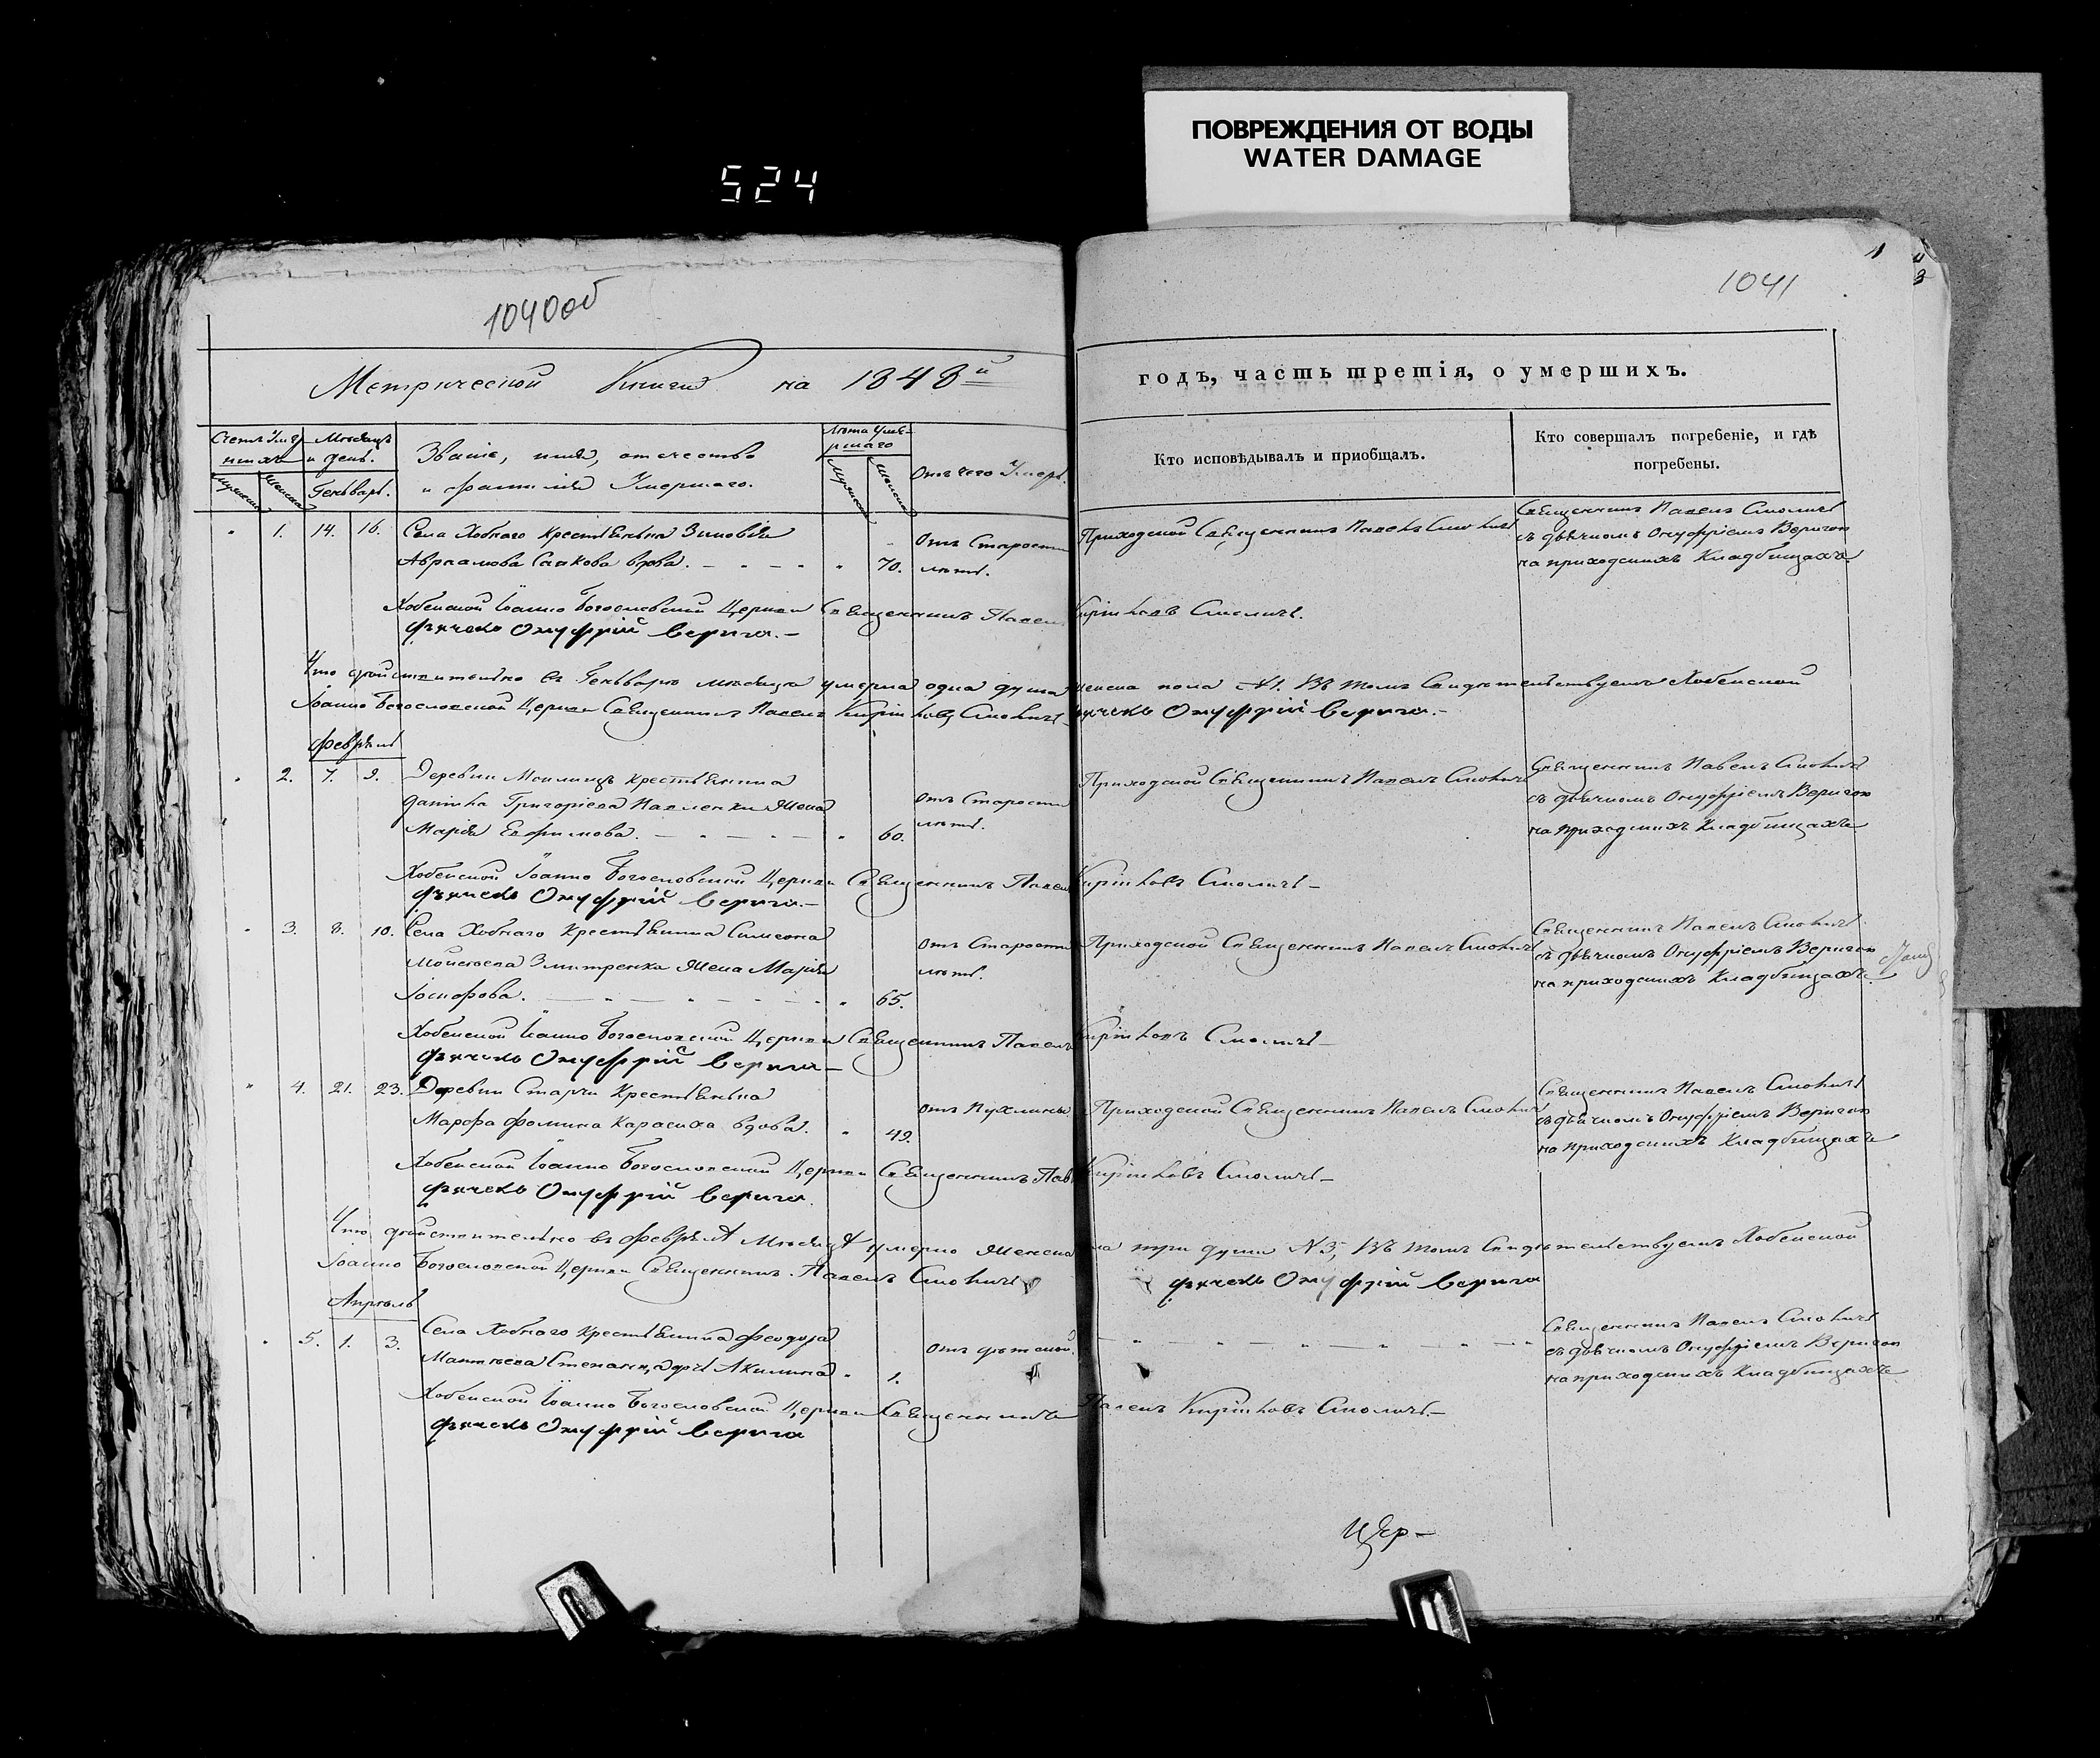 ПОВРЕЖДЕНИЯ ОТ ВОДЫ
WATER DAMAGE
524
1040об
1041
Метрической Книги на 1848й
годъ, часть третія, о умершихъ.
Мѣсяцъ и день.
Генварь.
Званіе, имя, отечество
и фамилія Умершаго.
Лѣта Уме-
ршаго
Отъ чего Умеръ.
Кто исповѣдывалъ и приобщалъ.
Кто совершалъ погребеніе, и гдѣ
погребены.
1. 14. 16. Села Хобнаго крестьянка Зиновія
Авраамова вдова. 70.
Отъ Старости
лѣтъ.
Приходской Священникъ Павелъ Смоличъ
Священникъ Павелъ Смоличъ
съ дьячкомъ Онуфріемъ Веригою
на приходскихъ Кладбищахъ.
Хобенской Іоанно Богословской Церкви Священникъ Павелъ Кириловъ Смоличъ.
Дьячекъ Онуфрій Верига.
Что дѣйствительно въ Генвварѣ мѣсяцѣ умерла одна душа женска пола №1. Въ томъ Свидѣтельствуемъ Хобенской
Іоанно Богословской Церкви Священникъ Павелъ Кириловъ Смоличъ Дьячекъ Онуфрій Верига.
Февраль
2. 7. 9. Деревни крестьянина
Даніила Григоріева Павленки жена
Марія Евфимова. 60.
Отъ Старости
лѣтъ.
Приходской Священникъ Павелъ Смоличъ
Священникъ Павелъ Смоличъ
съ дьячкомъ Онуфріемъ Веригою
на приходскихъ Кладбищахъ
Хобенской Іоанно Богословской Церкви Священникъ Павелъ Кириловъ Смоличъ
Дьячекъ Онуфрій Верига.
3. 8. 10. Села Хобнаго Крестьянина Симеона
Моисеева Змитренка жена Марія
65.
Отъ Старости
лѣтъ.
Приходской Священникъ Павелъ Смоличъ
Священникъ Павелъ Смоличъ
съ дьячкомъ Онуфріемъ Веригою
на приходскихъ Кладбищахъ.
Хобенской Іоанно Богословской Церкви Священникъ Павелъ Кириловъ Смоличъ
Дьячекъ Онуфрій Верига
4. 21. 23. Деревни Крестьянка
Марфа Фомина Карасиха вдова. 49.
Отъ Пухлины
Приходской Священникъ Павелъ Смоличъ
Священникъ Павелъ Смоличъ
съ дьячкомъ Онуфріемъ Веригою
на приходскихъ Кладбищахъ
Хобенской Іоанно Богословской Церкви Священникъ Павелъ Кириловъ Смоличъ
Дьячекъ Онуфрій Верига.
Что дѣйствительно въ Февралѣ Мѣсяцѣ умерло женска пола три души №3, Въ томъ Свидѣтельствуемъ Хобенской
Іоанно Богословской Церкви Священникъ Павелъ Смоличъ
Дьячекъ Онуфрій Верига
Апрѣль
5. 1. 3. Села Хобнаго Крестьянина Феодора
Матвеева дочь Акилина 1.
Отъ дѣтской.
Священникъ Павелъ Смоличъ
съ дьячкомъ Онуфріемъ Веригою
на приходскихъ Кладбищахъ.
Хобенской Іоанно Богословской Церкви Священникъ Павелъ Кириловъ Смоличъ
Дьячекъ Онуфрій Верига